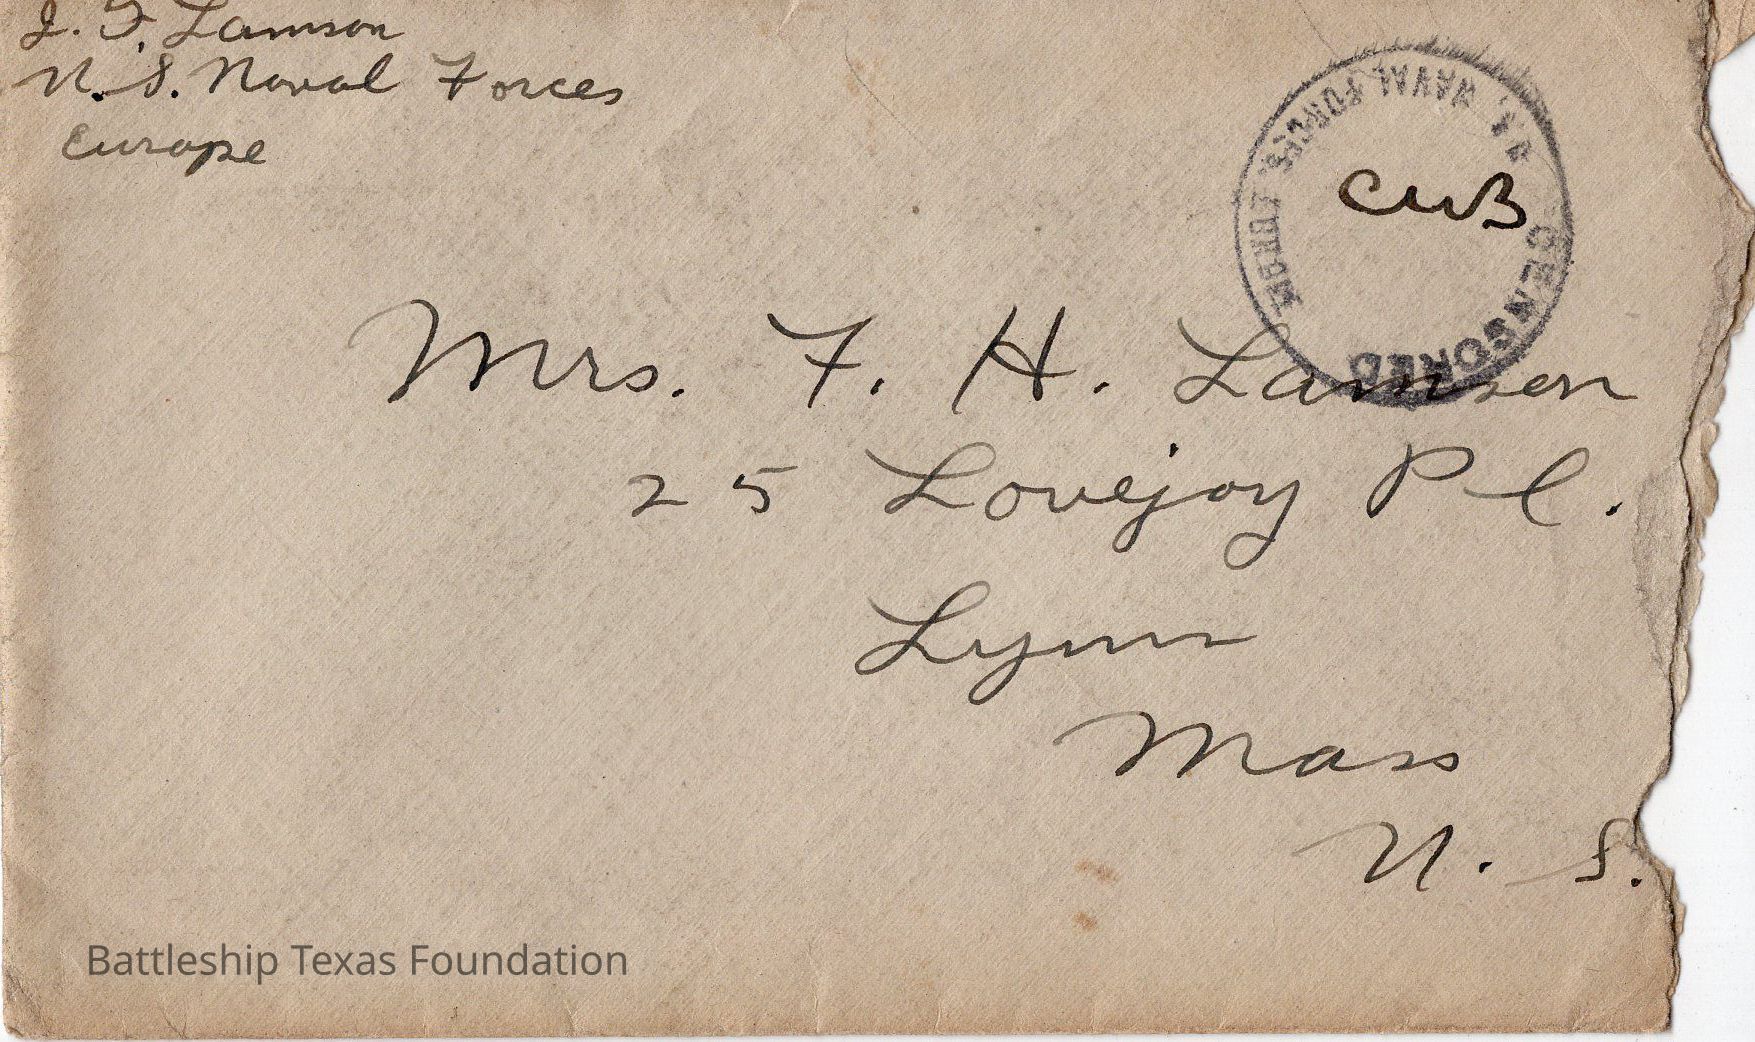 J. F. Lamson
U. S. Naval Forces
Europe
CENSORED
NAVAL FORCES
CWB
Mrs. F. H. Lamson
25 Lovejoy Pl.
Lynn
Mass
U. S.
Battleship Texas Foundation